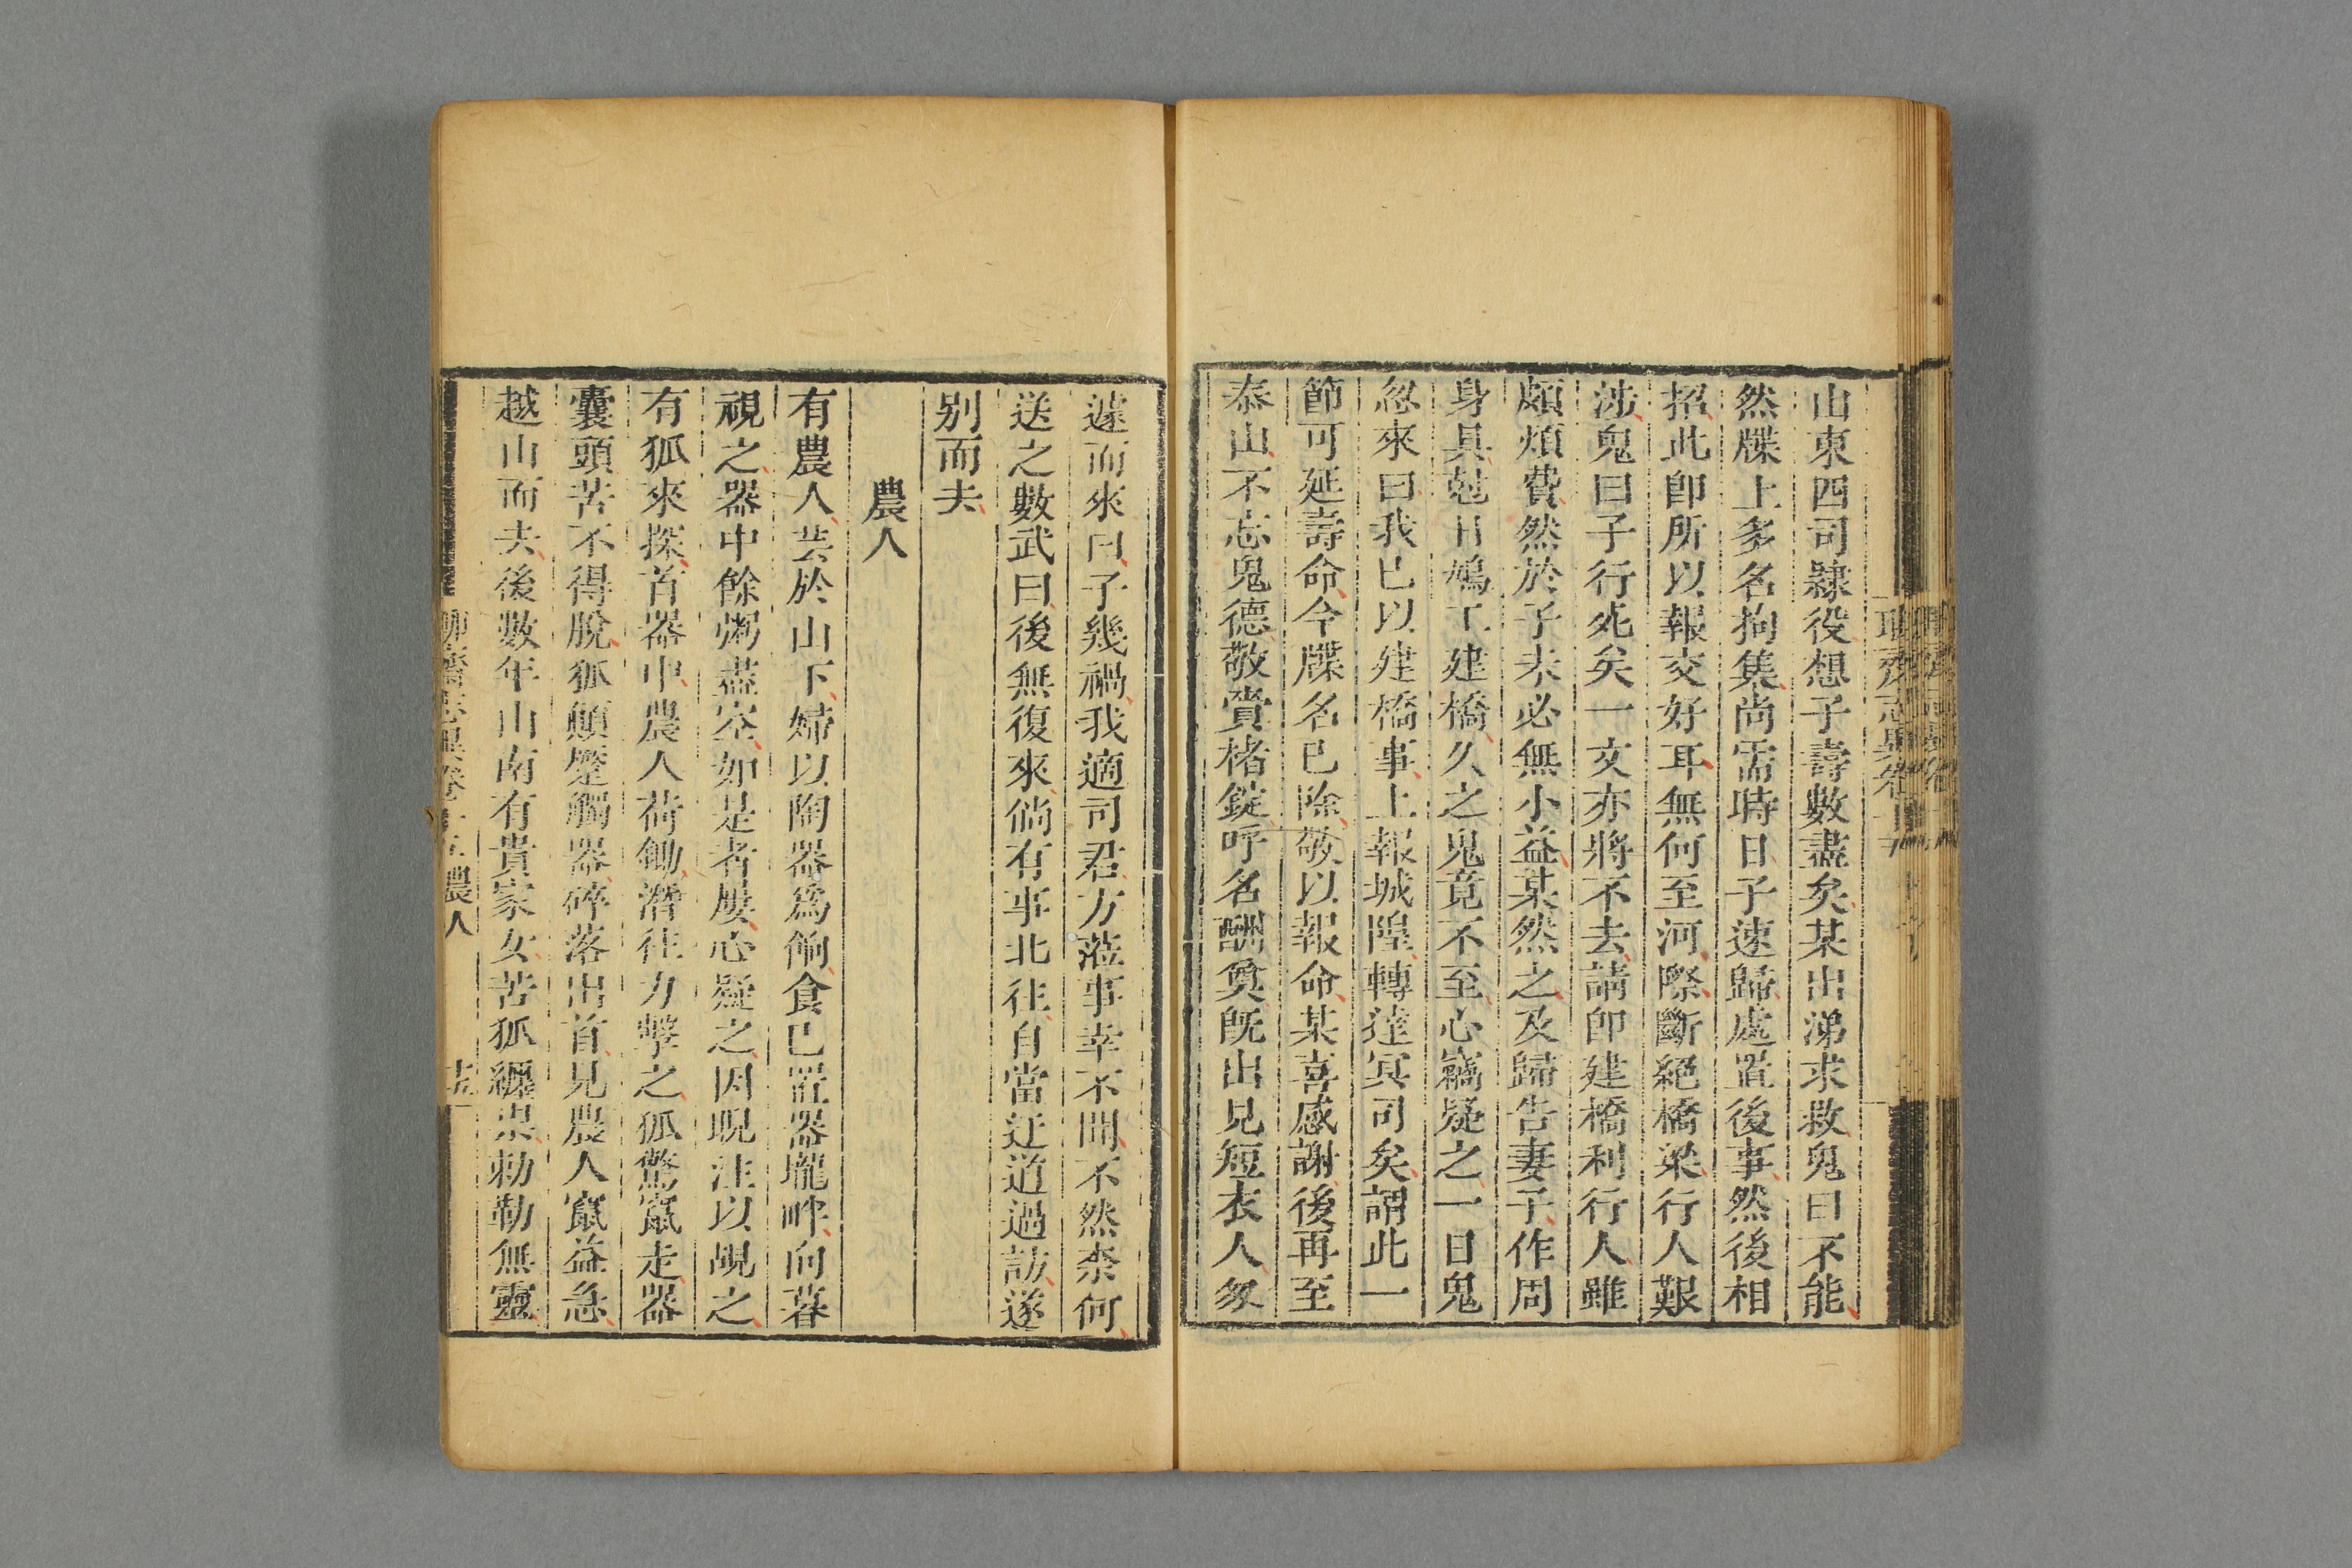 山東四司隸役想子壽數盡矣某出涕求救鬼曰不能
然牒上多名拘集尚需時日子速歸處置後事然後相
招此卽所以報交好耳無何至河際斷絕橋梁行人艱
涉鬼曰子行死矣一文亦將不去請卽建橋利行人雖
頗煩費然於子未必無小益某然之及歸告妻子作周
身具尅日鳩工建橋久之鬼竟不至心竊疑之一日鬼
忽來曰我已以建橋事上報城隍轉達冥司矣謂此一
節可延壽命今牒名已除敬以報命某喜感謝後再至
泰山不忘鬼德敬賫楮錠呼名酬奠旣出見短衣人匆
遽而來曰子幾禍我適司君方蒞事幸不聞不然柰何
送之數武曰後無復來倘有事北往自當迂道過訪遂
别而去
農人
有農人芸於山下婦以陶器爲餉食已置器壠畔向暮
視之器中餘粥盡空如是者屢心疑之因睨注以覘之
有狐來探首器中農人荷鋤潛往力擊之狐驚竄走器
囊頭苦不得脫狐顛蹷觸器碎落出首見農人竄益急
越山而去後數年山南有貴家女苦狐纏祟勅勒無靈
聊齋志異卷十五 農人 十五